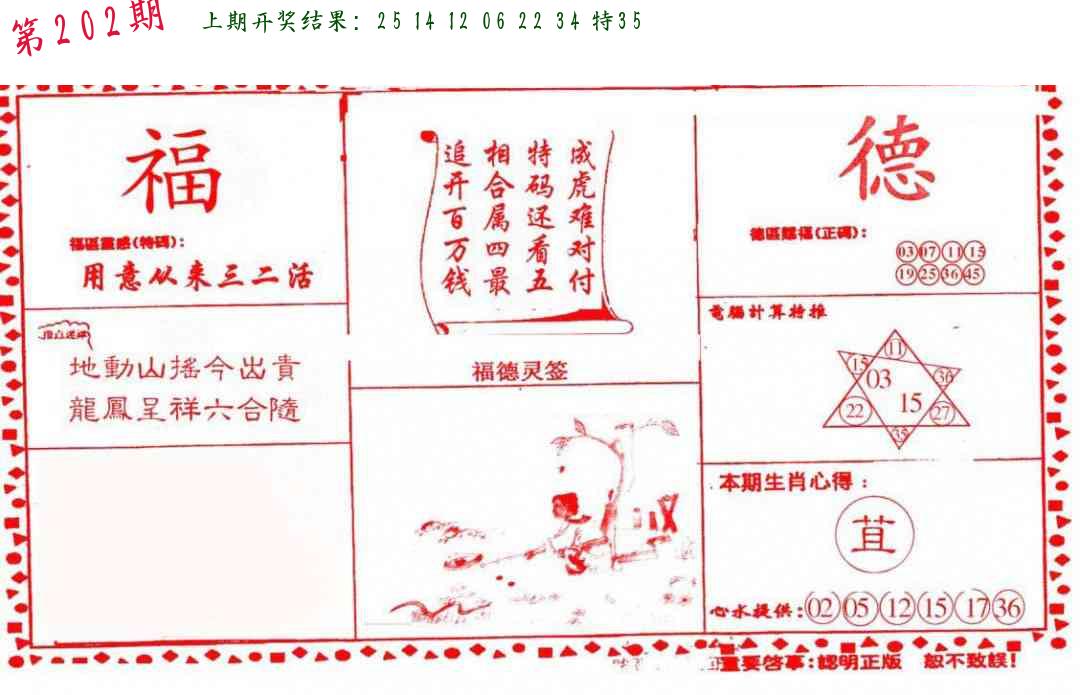 第202期
上期开奖结果: 25 14 12 06 22 34 特35
福
福區靈感(特碼):
用意从来三二活
地動山搖今出貴
龍鳳呈祥六合隨
成虎难对付
特码还看五
相合属四最
追开百万钱
福德灵签
德
德區賜福(正碼):
03 07 11 15
19 25 36 45
電腦計算特推
11
15 03 36
22 15 27
35
本期生肖心得:
苴
心水提供: 02 05 12 15 17 36
重要啓事:認明正版 恕不致誤!